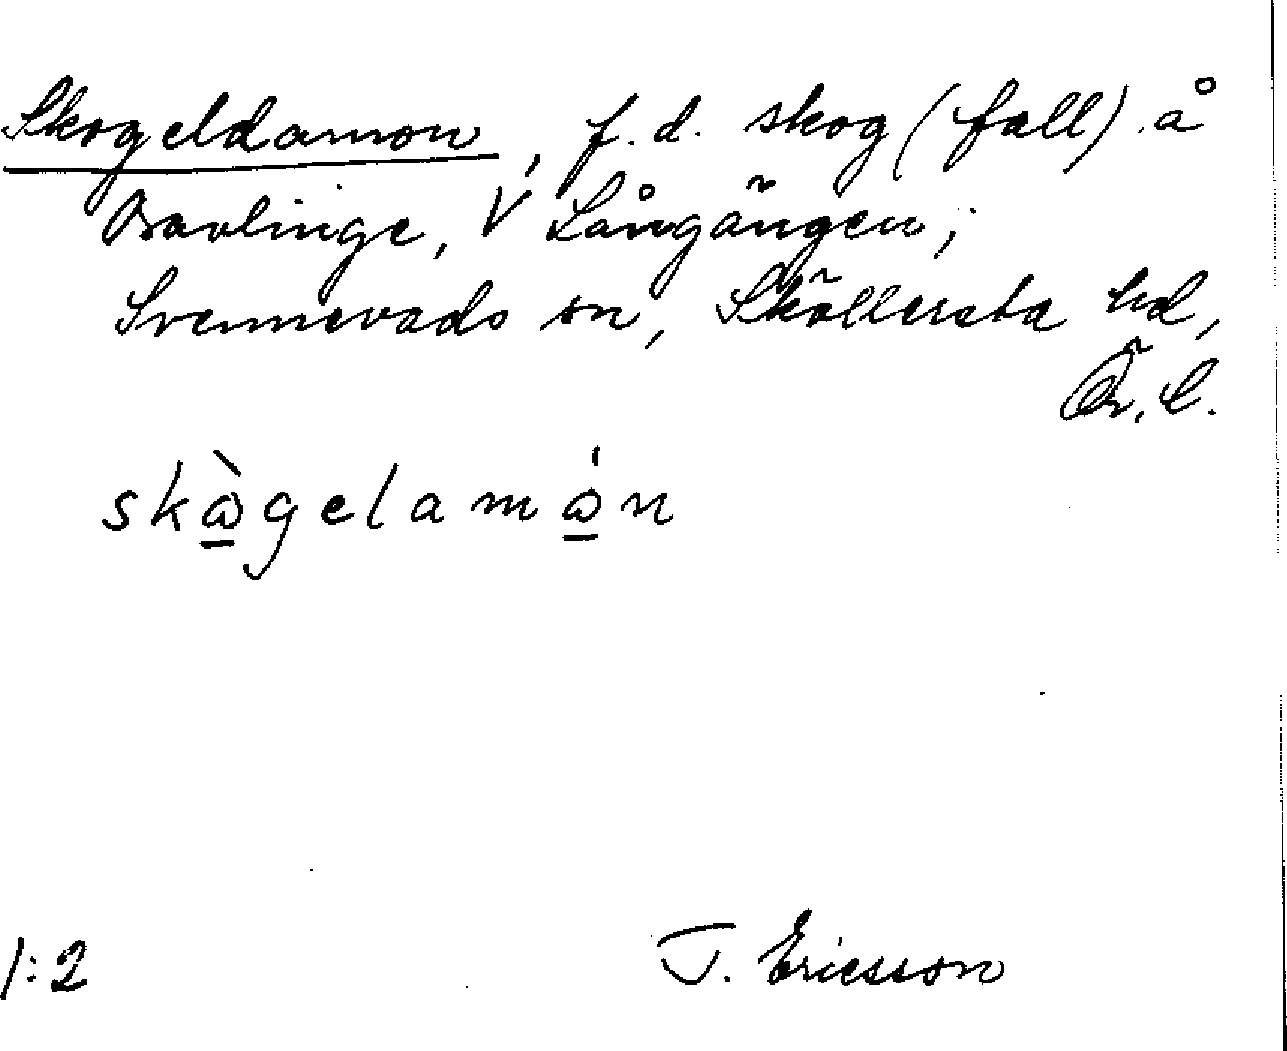 Skogeldamon, f.d. skog (fall) å
Bavlinge, V Långängen;
Svennevads sn, Sköllersta hd,
Ör. l.
skὼ̲gelamώ̲n
1:2 J. Ericsson